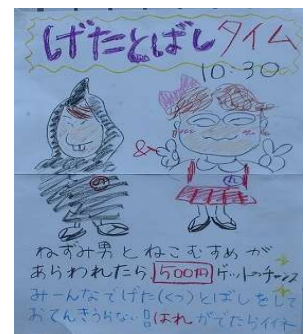 げたとばしタイム
10:30
&
ねずみ男とねこむすめが
あらわれたら 500円 ゲットのチャンス
みーんなでげた(くつ)とばしをして
おてんきうらない はれがでたらイイネ